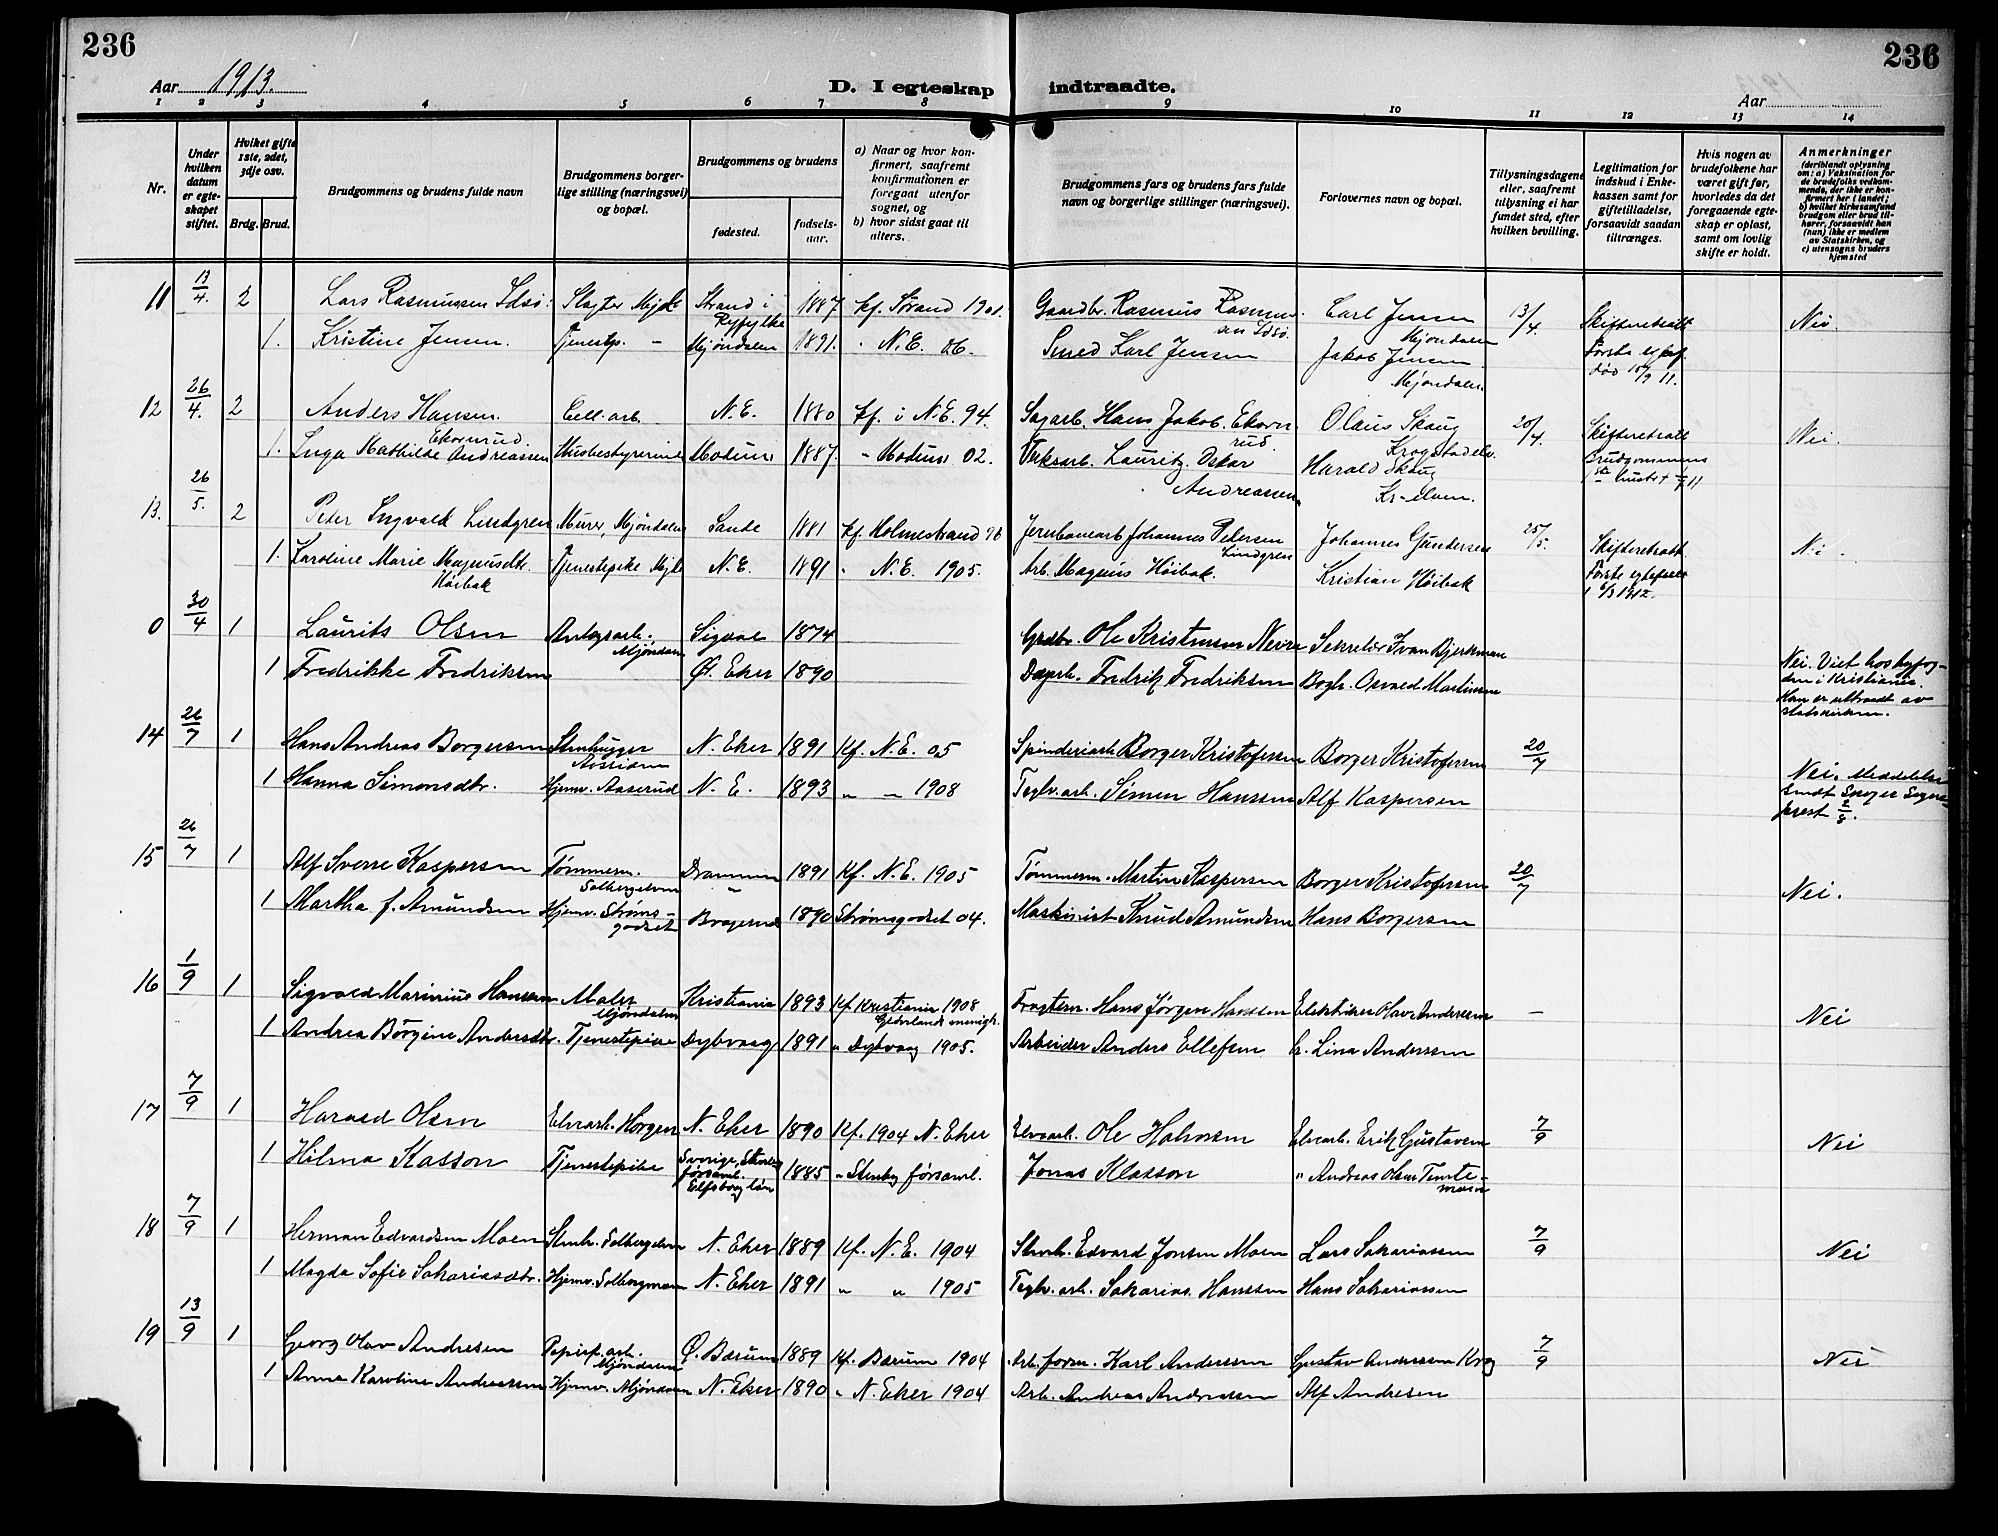 236
236
Aar 1913.
D. I egteskap indtraadte.
Aar
1 2 3 4 5 6 7 8 9 10 11 12 13 14
Nr.
Under hvilken datum er egteskapet stiftet.
Hvilket gifte 1ste, 2det, 3dje osv.
Brdg. Brud.
Brudgommens og brudens fulde navn
Brudgommens borgerlige stilling (næringsvei) og bopæl.
Brudgommens og brudens
fødested.
fødselsaar.
a) Naar og hvor konfirmert, saafremt konfirmationen er foregaat utenfor sognet, og
b) hvor sidst gaat til alters.
Brudgommens fars og brudens fars fulde navn og borgerlige stillinger (næringsvei).
Forlovernes navn og bopæl.
Tillysningsdagene eller, saafremt tillysning ei har fundet sted, efter hvilken bevilling.
Legitimation for indskud i Enkekassen samt for giftetilladelse, forsaavidt saadan tiltrænges.
Hvis nogen av brudefolkene har været gift før, hvorledes da det foregaaende egteskap er opløst, samt om lovlig skifte er holdt.
Anmerkninger
(deriblandt oplysning om: a) Vaksination for de brudefolks vedkommende, der ikke er konfirmert her i landet; b) hvilket kirkesamfund brudgom eller brud tilhører, forsaavidt han (hun) ikke er medlem av Statskirken, og c) utensogns bruders hjemsted
11 13/4. 2 Lars Rasmussen Idsø. Slagter Mjdl Strand i Ryfylke 1887 kf. Strand 1901. Gaardbr. Rasmus Rasmussen Idsø. Carl Jensen Mjøndalen 13/4. Skifteretsatt Første egtef. død 15/9 11. Nei.
1. Kristine Jensen. Tjenestp. - Mjøndalen 1891. " N.E. 06. Smed Karl Jensen Jakob Jensen Mjøndalen.
12 26/4. 2 Anders Hansen Ekornrud. Cell. arb. N.E. 1880 kf. i N.E. 94. Sagarb. Hans Jakob. Ekornrud Olaus Skaug Krogstadelv. 20/4. Skifteretsatt Brudgommens 1ste hustr † 11 Nei.
1. Inga Mathilde Andreassen Husbestyrerinde Modum 1887. " Modum 02. Verksarb. Lauritz Oskar Andreassen Harald Skaug Kr-elven.
13. 26/5. 2 Peter Ingvald Lindgren Murer, Mjøndalen Sande 1881 kf. Holmestrand 96 Jernbanearb Johannes Pedersen Lindgren Johannes Gundersen 25/5. Skifteretsatt. Første egtefælle † 6/3 1912. Nei.
1. Karoline Marie Magnusdtr. Høibak Tjenestepike Mjdl N.E. 1891 " N.E. 1905. Arb. Magnus Høibak. Kristian Høibak
0 30/4 1 Laurits Olsen Anlægsarb. Mjøndalen Sigdal 1874 Grdbr. Ole Kristensen Nevre Sekretær Ivan Bjerkman
1 Fredrikke Fredriksen Ø. Eker 1890 Dagarb. Fredrik Fredriksen Bogh. Osvald Martinsen Nei. Viet hos byfogden i Kristiania. Han er uttraadt av statskirken.
14 26/7 1 Hans Andreas Borgersen Stenhugger Assiden N. Eker 1891 Kf. N.E. 05 Spinderiarb Borger Kristofersen Borger Kristofersen 20/7
1 Hanna Simonsdtr. Hjemv. Aaserud N. E. 1893 " " 1908 Teglv. arb. Simen Hanssen Alf Kaspersen Nei. Meddelelse sendt Skoger Sogneprest 2/8.
15 26/7 1 Alf Sverre Kaspersen Tømmerm. Solbergelven Drammen 1891 Kf. N.E. 1905 Tømmerm. Martin Kaspersen Borger Kristofersen 20/7 Nei.
1 Martha f. Amundsen Hjemv. Strømsgodset Bragernes 1890 Strømsgodset 04. Maskinist Knud Amundsen Hans Borgersen
16 1/9 1 Sigvald Marinius Hanssen Maler Mjøndalen Kristiania 1893 Kf Kristiania 1908 Hans Jørgen Hanssen Elektriker Olav Anderssen - Nei
1 Andrea Børgine Andersdtr. Tjenestepike Dybvaag 1891 " Dybvaag 1905. Arbeider Anders Ellefsen Lina Anderssen
17 7/9 1 Harald Olsen Elvearb. Horgen N. Eker 1890 Kf. 1904 N. Eker Elvearb. Ole Halvorsen Elvearb. Erik Gustavsen 7/9 Nei
1 Hilma Klasson Tjenestepike Sverige, Stenby forsaml. Elfsborg län 1885 " Stenby forsaml. Jonas Klasson " Andreas Olsen Tomtemoen
18 7/9 1 Herman Edvardsen Moen Stenh. Solbergelven N. Eker 1889 Kf. N.E. 1904 Stenh. Edvard Jonsen Moen Lars Sakariassen 7/9 Nei
1 Magda Sofie Sakariasdtr. Hjemv. Solbergmoen N. Eker 1891 " " 1905 Teglv. arb. Sakarias Hanssen Hans Sakariassen
19 13/9 1 Georg Olav Andresen Papirf. arb. Mjøndalen Ø. Bærum 1889 Kf. Bærum 1904 Arb. form. Karl Anderssen Gustav Anderssen Krog 7/9 Nei
1 Anna Karoline Andreassen Hjemv. Mjøndalen N. Eker 1890 " N. Eker 1904 Arb. Andreas Andreassen Alf Andresen